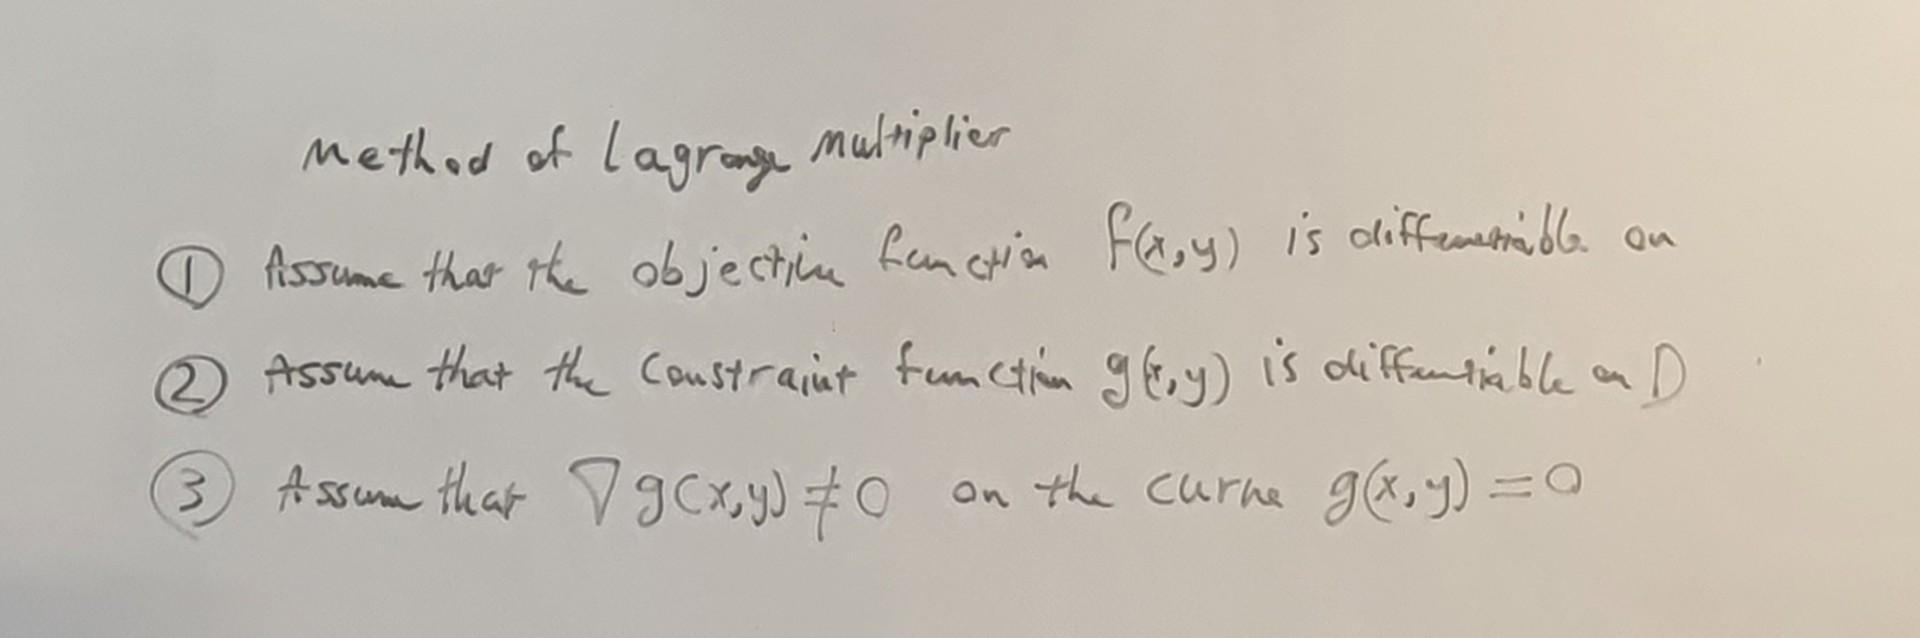 Method of Lagrange Multiplier
① Assume that the objective function f(x,y) is differentiable on
② Assume that the constraint function g(x,y) is differentiable on D
③ Assume that ∇g(x,y) ≠ 0 on the curve g(x,y) = 0